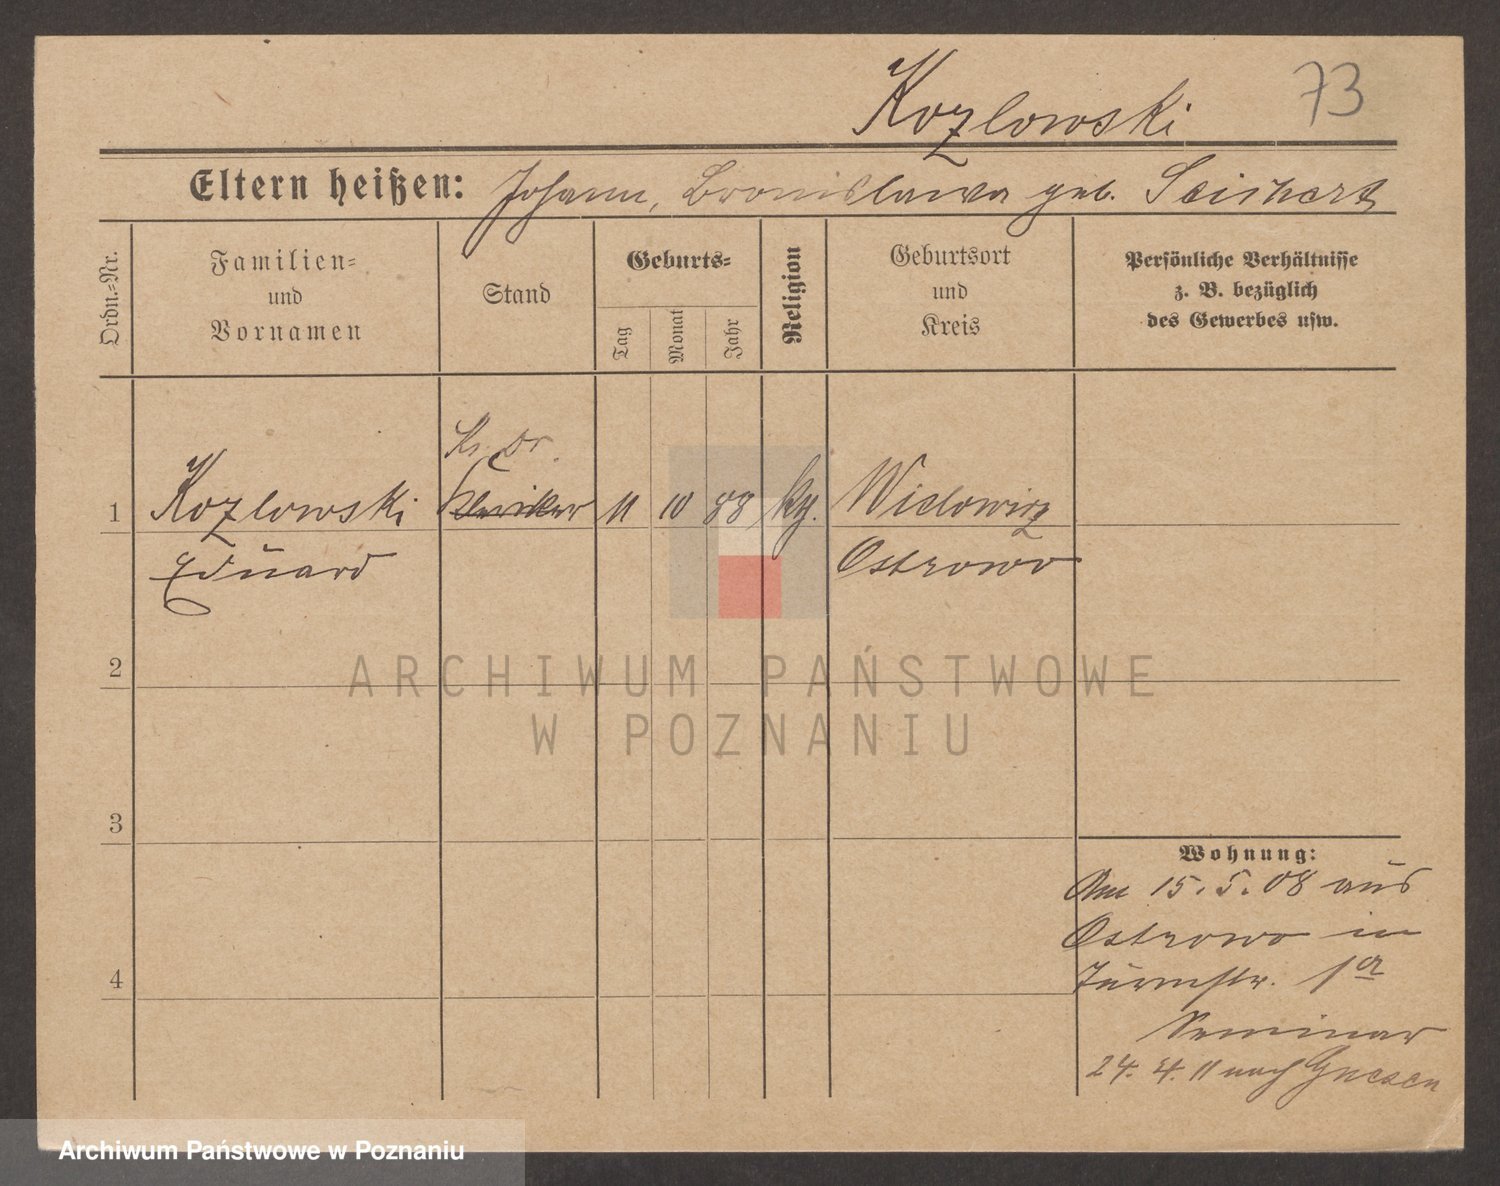 Kozlowski 73
Eltern heißen: Johann, Bronislawa geb.
Ordn.=Nr.
Familien=
und
Vornamen
Stand
Geburts=
Tag
Monat
Jahr
Religion
Geburtsort
und
Kreis
Persönliche Verhältnisse
z. B. bezüglich
des Gewerbes usw.
1 Kozlowski Kleriker 11 10 88
Eduard Ostrowo
2
3
4
Wohnung:
Am 15.5.08 aus
Ostrowo in
Turmstr. 1a
Seminar
24. 4. 11 nach Gnesen
ARCHIWUM PAŃSTWOWE
W POZNANIU
Archiwum Państwowe w Poznaniu